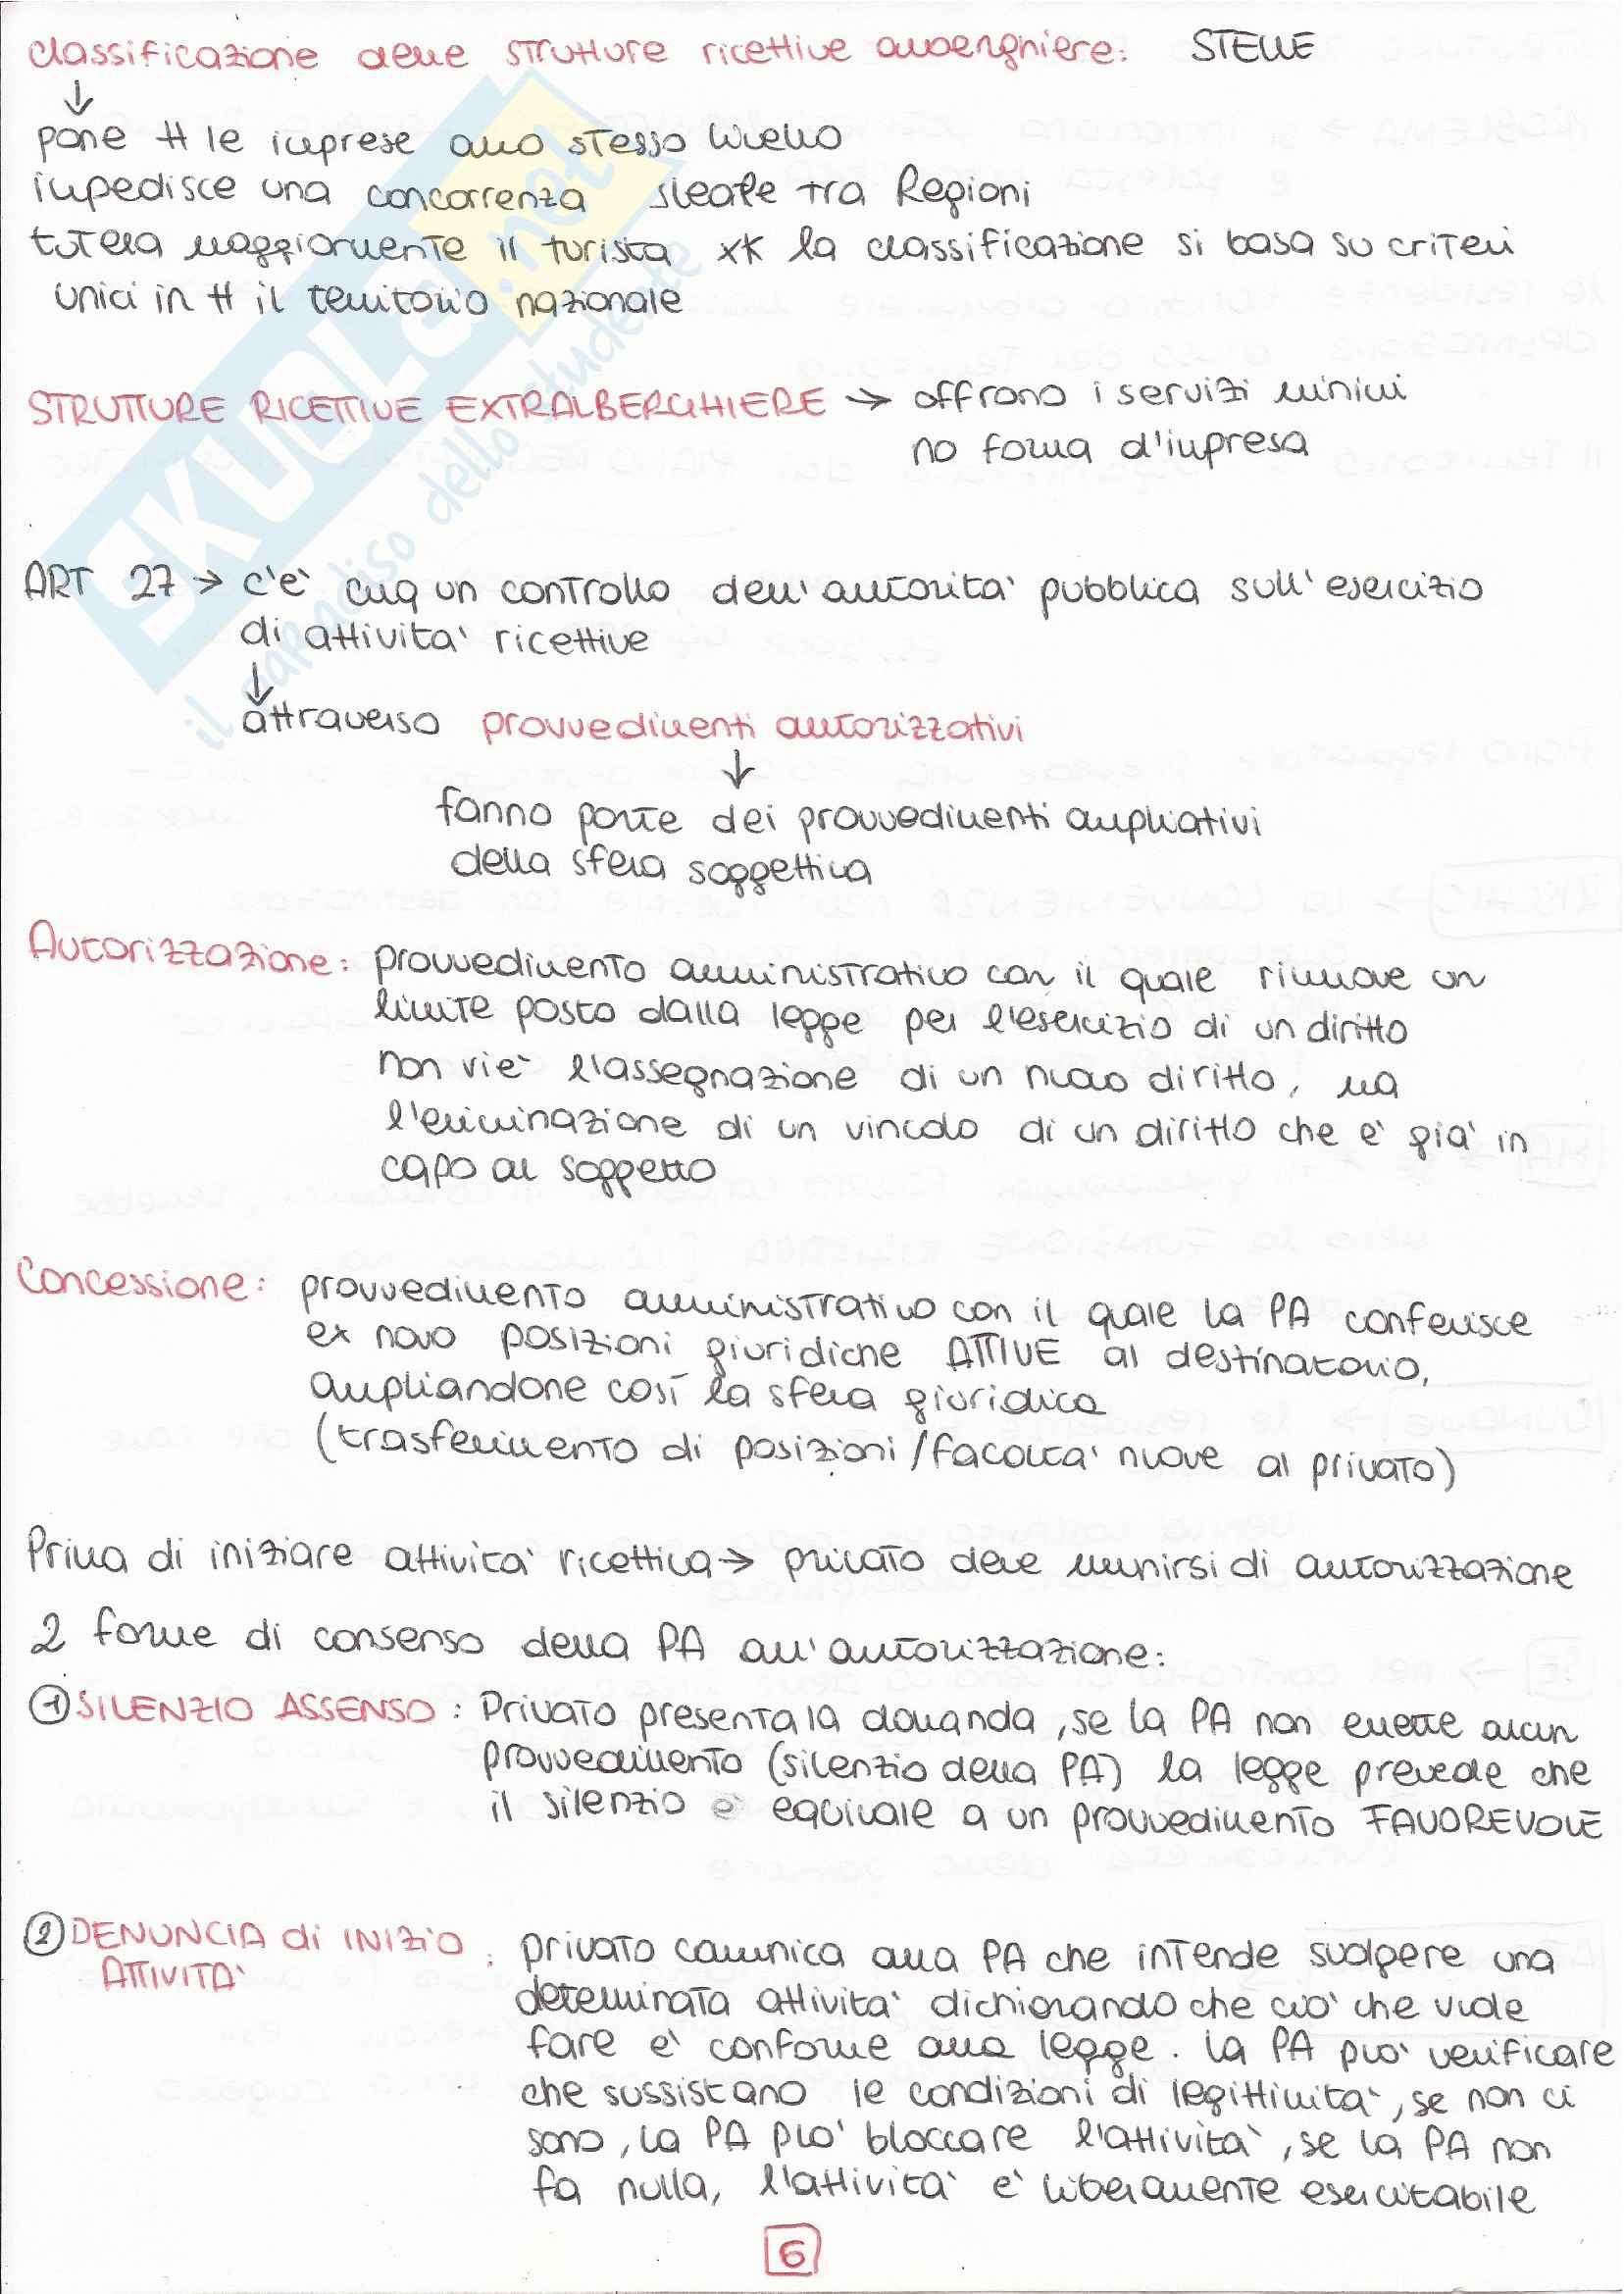 classificazione delle strutture ricettive alberghiere: STELLE
↓
pone tt le imprese allo stesso livello
impedisce una concorrenza sleale tra Regioni
tutela maggiormente il turista xk la classificazione si basa su criteri
unici in tt il territorio nazionale
STRUTTURE RICETTIVE EXTRALBERGHIERE → offrono i servizi minimi
no forma d'impresa
ART 27 → c'è cmq un controllo dell'autorità pubblica sull'esercizio
di attività ricettive
↓
attraverso provvedimenti autorizzativi
↓
fanno parte dei provvedimenti ampliativi
della sfera soggettiva
Autorizzazione: provvedimento amministrativo con il quale rimuove un
limite posto dalla legge per l'esercizio di un diritto
non vi è l'assegnazione di un nuovo diritto, ma
l'eliminazione di un vincolo di un diritto che è già in
capo al soggetto
Concessione: provvedimento amministrativo con il quale la PA conferisce
ex novo posizioni giuridiche ATTIVE al destinatario,
ampliandone così la sfera giuridica
(trasferimento di posizioni/facoltà nuove al privato)
Prima di iniziare attività ricettiva → privato deve munirsi di autorizzazione
2 forme di consenso della PA all'autorizzazione:
① SILENZIO ASSENSO: Privato presenta la domanda, se la PA non emette alcun
provvedimento (silenzio della PA) la legge prevede che
il silenzio è equivale a un provvedimento FAVOREVOLE
② DENUNCIA di INIZIO ATTIVITÀ: privato comunica alla PA che intende svolgere una
determinata attività dichiarando che ciò che vuole
fare è conforme alla legge. la PA può verificare
che sussistano le condizioni di legittimità, se non ci
sono, la PA può bloccare l'attività, se la PA non
fa nulla, l'attività è liberamente esercitabile
6
SKUOLA.net
il paradiso dello studente